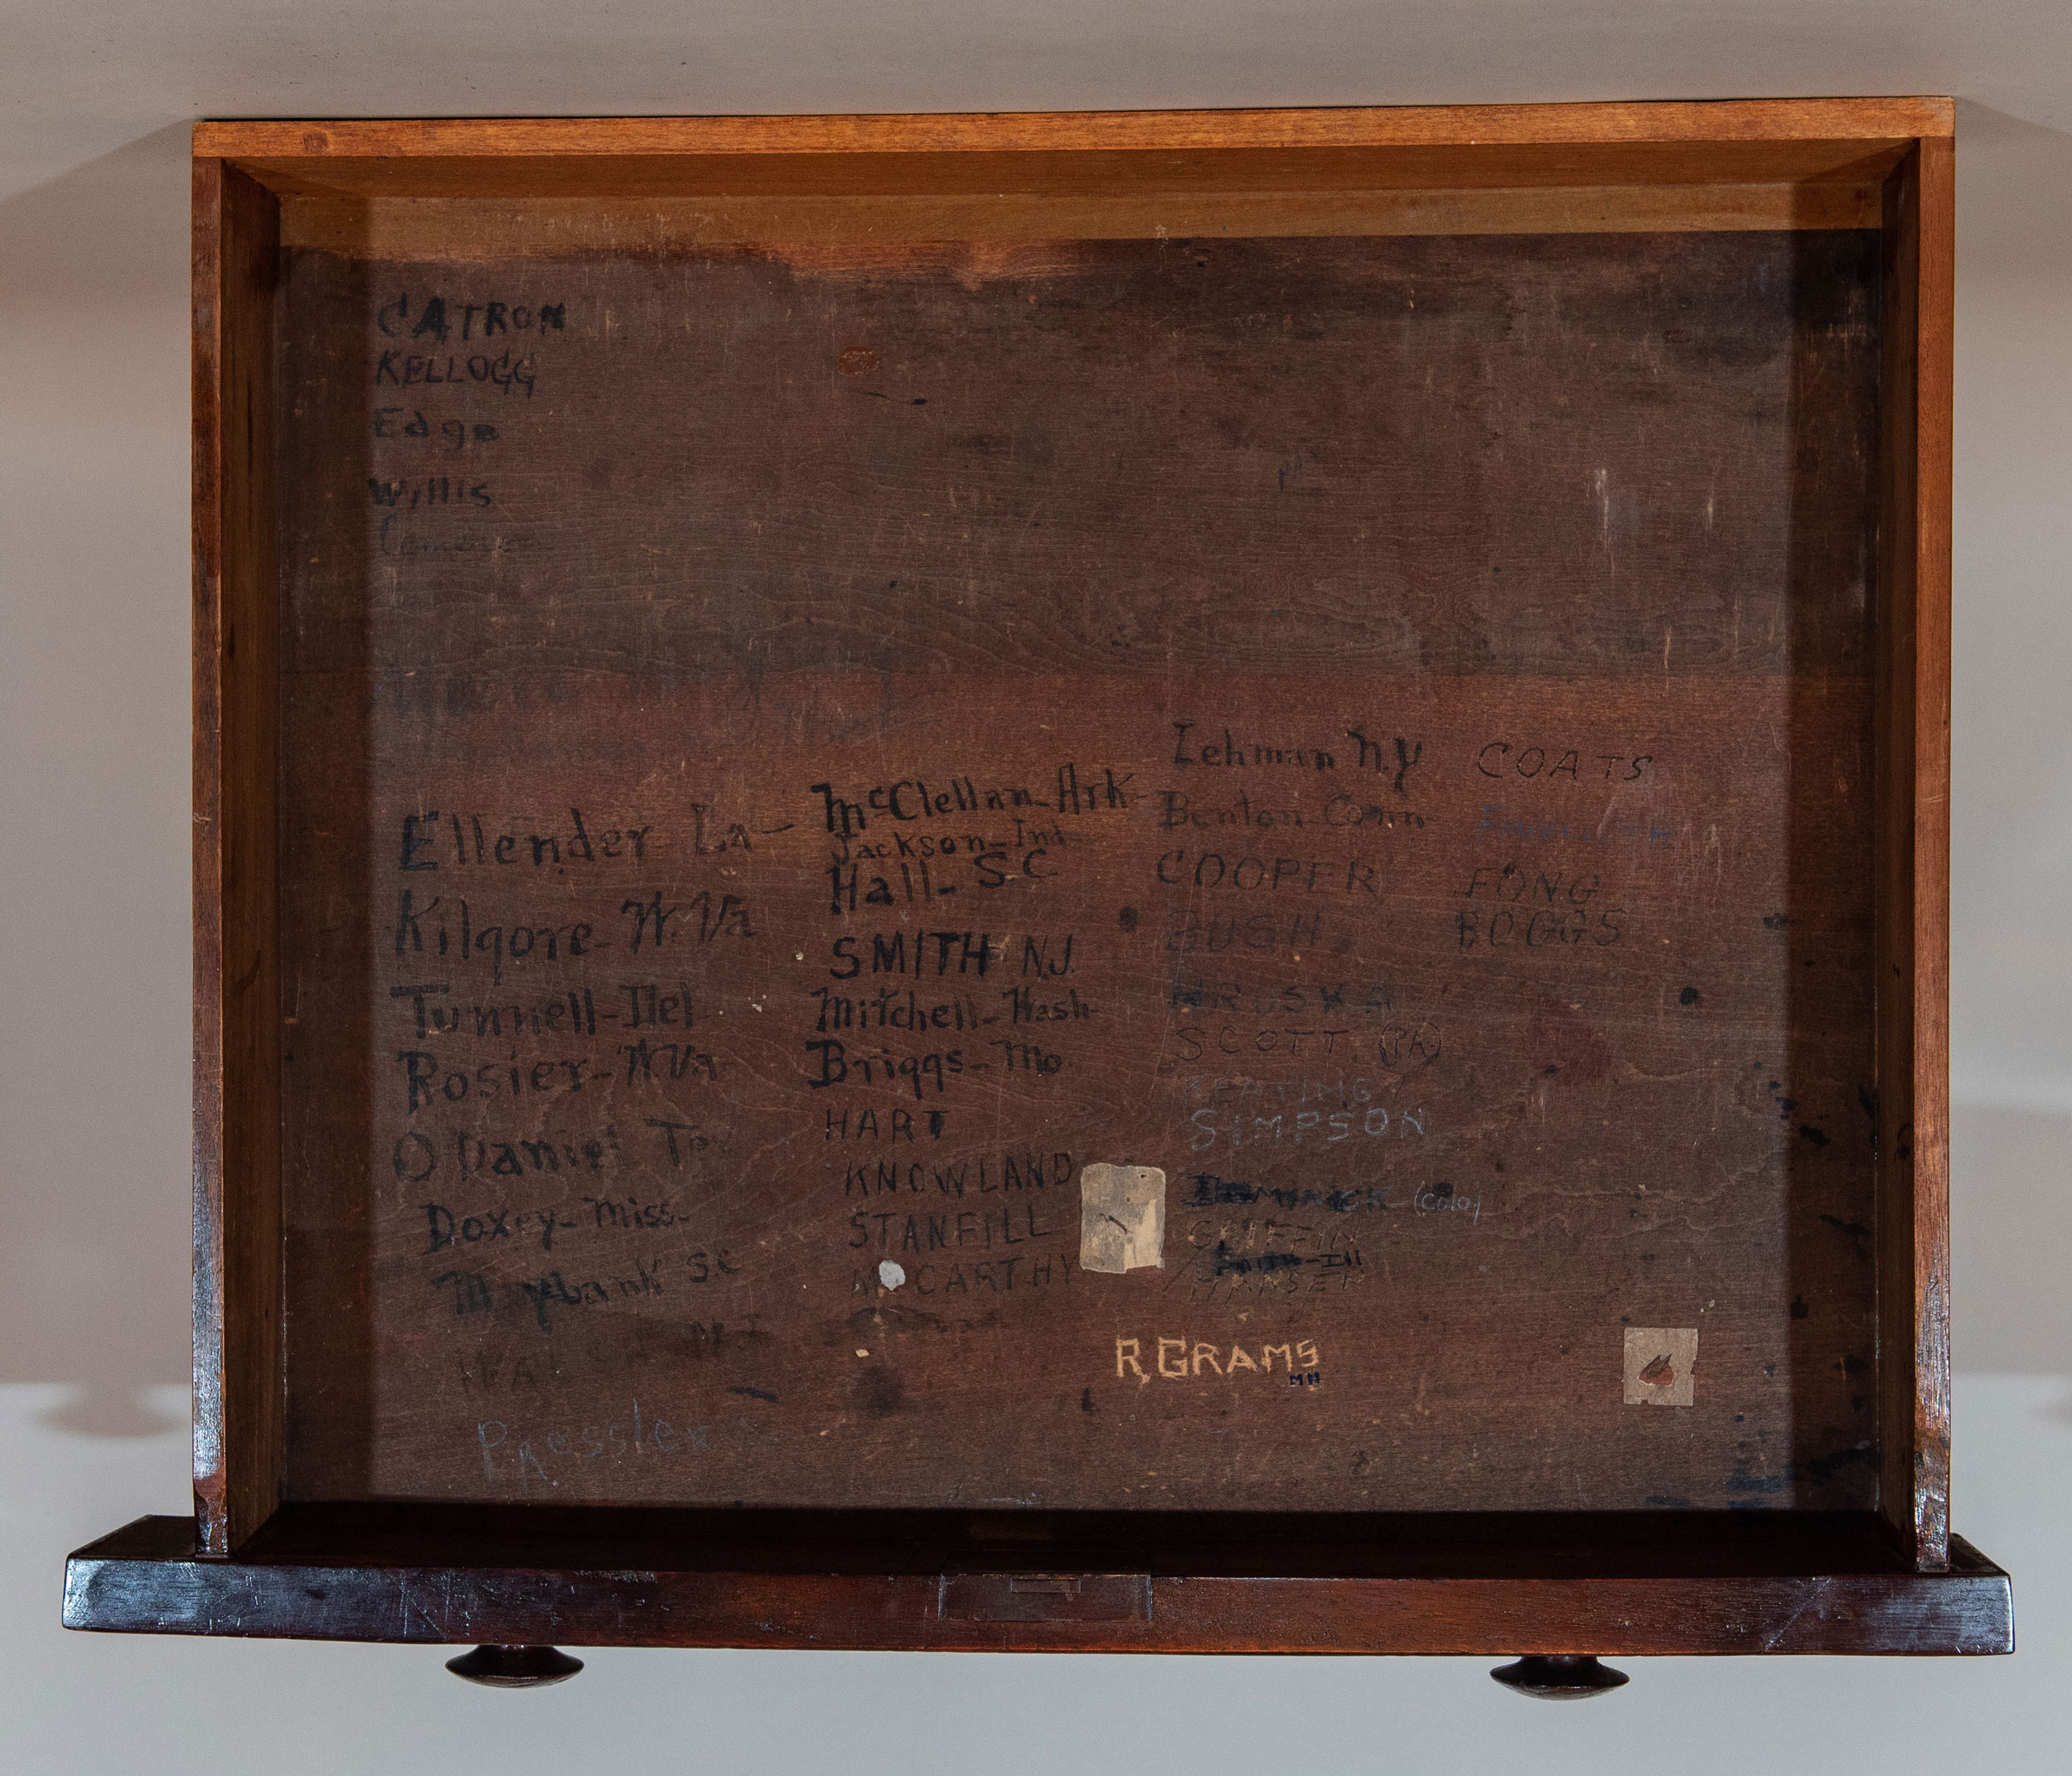 CATRON
KELLOGG
Edge
Willis
Ellender La-
Kilgore-W.Va
Tunnell-Del
Rosier-W.Va
O'Daniel Te
Doxey-Miss-
Maybank S.C
Pressler
McClellan-Ark-
Jackson-Ind-
Hall-S.C
SMITH N.J.
Mitchell-Wash-
Briggs-Mo
HART
KNOWLAND
STANFILL
McCARTHY
Lehman N.Y
Benton-Conn-
COOPER
BUSH
HRUSKA
SCOTT (PA)
KEATING
SIMPSON
DOMINICK (Colo)
GRIFFIN
HANSEN
R, GRAMS
MN
COATS
FONG
BOGGS